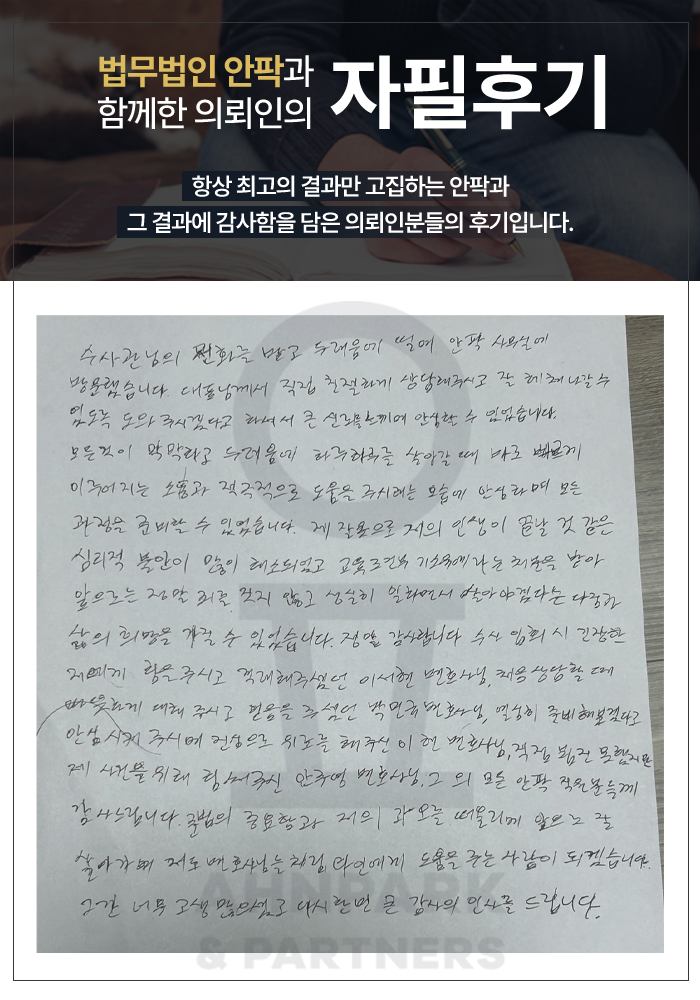 법무법인 안팍과
함께한 의뢰인의
자필후기
항상 최고의 결과만 고집하는 안팍과
그 결과에 감사함을 담은 의뢰인분들의 후기입니다.
수사관님의 전화를 받고 두려움에 떨며 안팍 사무실에
방문했습니다. 대표님께서 직접 친절하게 상담해주시고 잘 헤쳐나갈수
있도록 도와주시겠다고 하셔서 큰 신뢰를 느끼며 안심할 수 있었습니다.
모든것이 막막하고 두려움에 하루하루를 살아갈 때 바로 빠르게
이루어지는 소통과 적극적으로 도움을 주시려는 모습에 안심하며 모든
과정을 준비할 수 있었습니다. 제 잘못으로 저의 인생이 끝날 것 같은
심리적 불안이 많이 해소되었고 교육조건부 기소유예라는 처분을 받아
앞으로는 정말 죄를 짓지 않고 성실히 일하면서 살아야겠다는 다짐과
삶의 희망을 가질 수 있었습니다. 정말 감사합니다 수사 입회 시 긴장한
저에게 힘을주시고 격려해주셨던 이서현 변호사님, 처음 상담할 때
따뜻하게 대해 주시고 믿음을 주셨던 박민규 변호사님, 열심히 준비해보겠다고
안심시켜 주시며 진심으로 위로를 해주신 이현 변호사님, 직접 뵙진 못했지만
제 사건을 위해 힘써주신 안주영 변호사님. 그 외 모든 안팍 직원분들께
감사드립니다. 준법의 중요함과 저의 과오를 떠올리며 앞으로 잘
살아가며 저도 변호사님들처럼 타인에게 도움을 주는 사람이 되겠습니다.
그간 너무 고생 많으셨고 다시한번 큰 감사의 인사를 드립니다.
AHNPARK
& PARTNERS